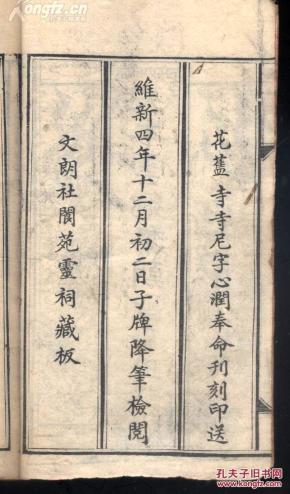 花藍寺寺尼字心潤奉命刊刻印送
維新四年十二月初二日子牌降筆檢閱
文朗社閬苑靈祠藏板
Kongfz.cn
孔夫子旧书网